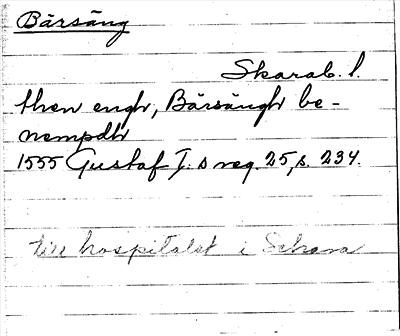 Bärsäng
Skarab. l.
then engh, Bärsängh be-
nempdh
1555 Gustaf I:s reg. 25, s. 234.
till hospitalet i Schara